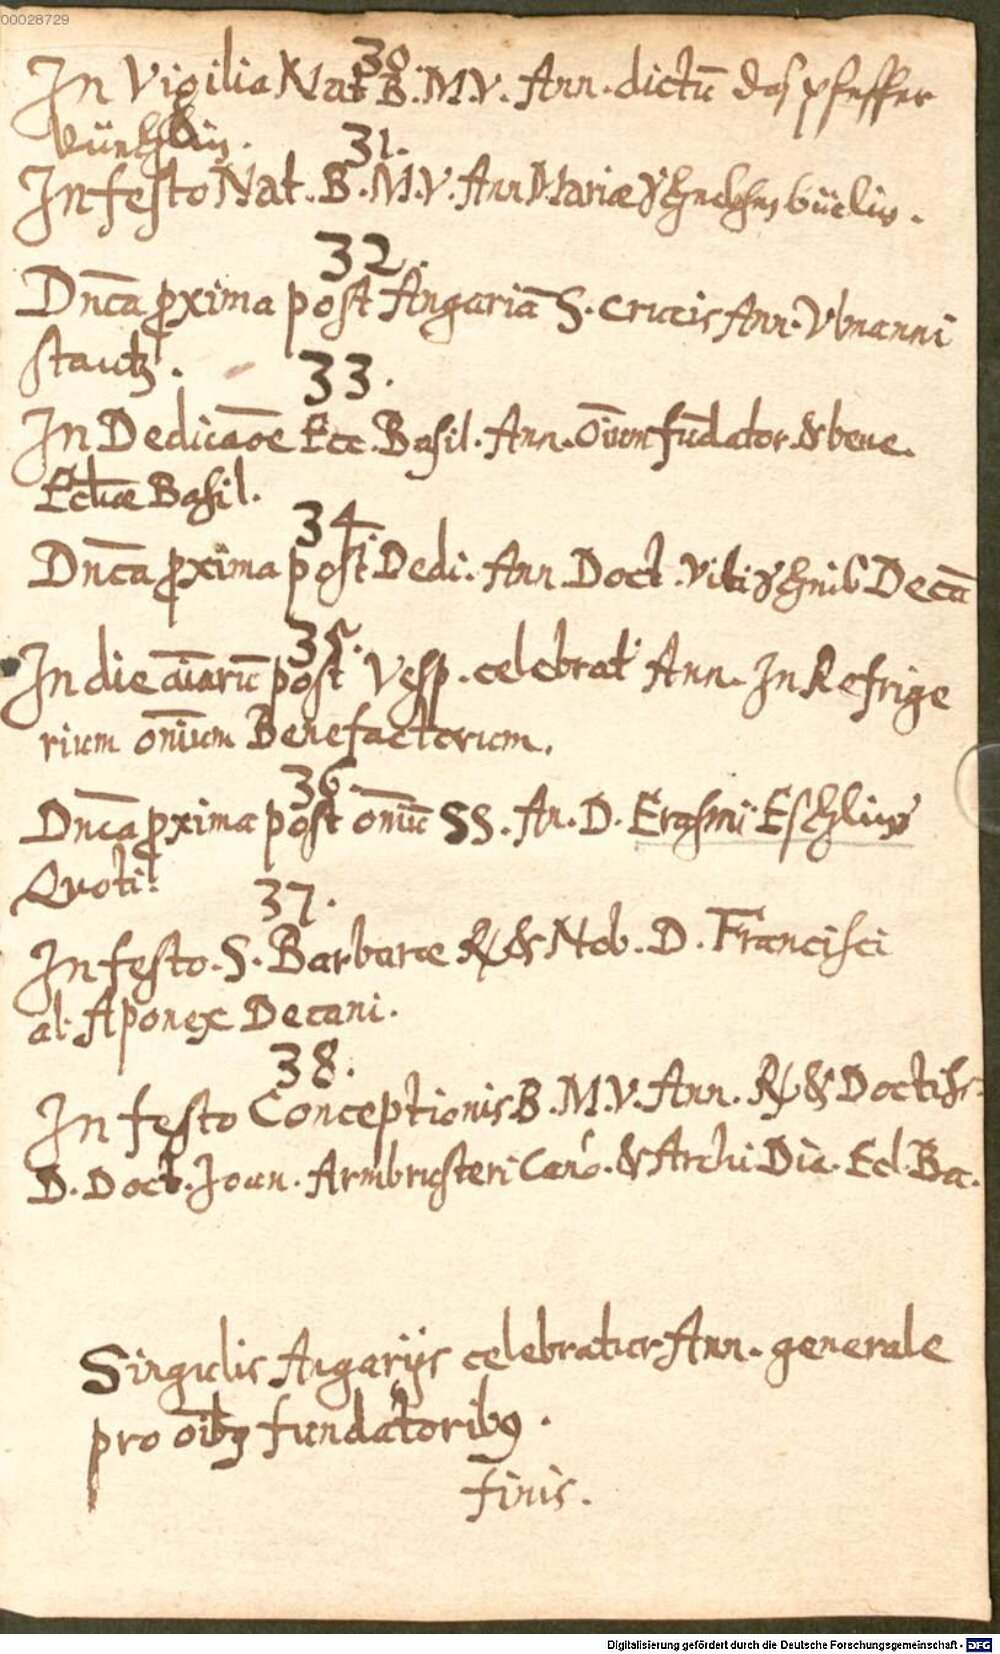 00028729
30.
In Vigilia Nat B. M. V. Ann. dictū das pfeffer
31.
In festo Nat. B. M. V. Ann Mariæ
32.
Dn̄ca ꝓxima post Angariā S. crucis Ann. Vlmanni
stautz.
33.
In Dedicaōe Ecc. Basil. Ann. Oīum fūdator & bene.
Eccliæ Basil.
34.
Dn̄ca ꝓxima post Dedi. Ann Doct. Viti Schnib Decā
35.
In die aīarū post Vesp. celebrat Ann. In Refrige
rium om̄ium Benefactorum.
36.
Dn̄ca ꝓxima post om̄iū SS. An. D. Erasmi
Quoti:
37.
In festo. S. Barbaræ R & Nob. D. Francisci
ab Aponex Decani.
38.
In festo Conceptionis B. M. V. Ann. R & Doctiss.
D. Doct. Joan. Armbrusteri Cano. & Archi Dia. Ecl. Ba.
Singulis Angarijs celebratur Ann. generale
pro oībꝫ fundatoribꝫ.
finis.
Digitalisierung gefördert durch die Deutsche Forschungsgemeinschaft - DFG